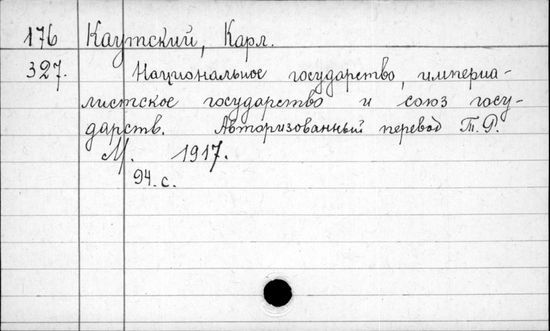 176 Каутский, Карл.
327. Национальное государство, империа-
листское государство и союз госу-
дарств. Авторизованный перевод Т.Р.
М. 1917.
94. с.